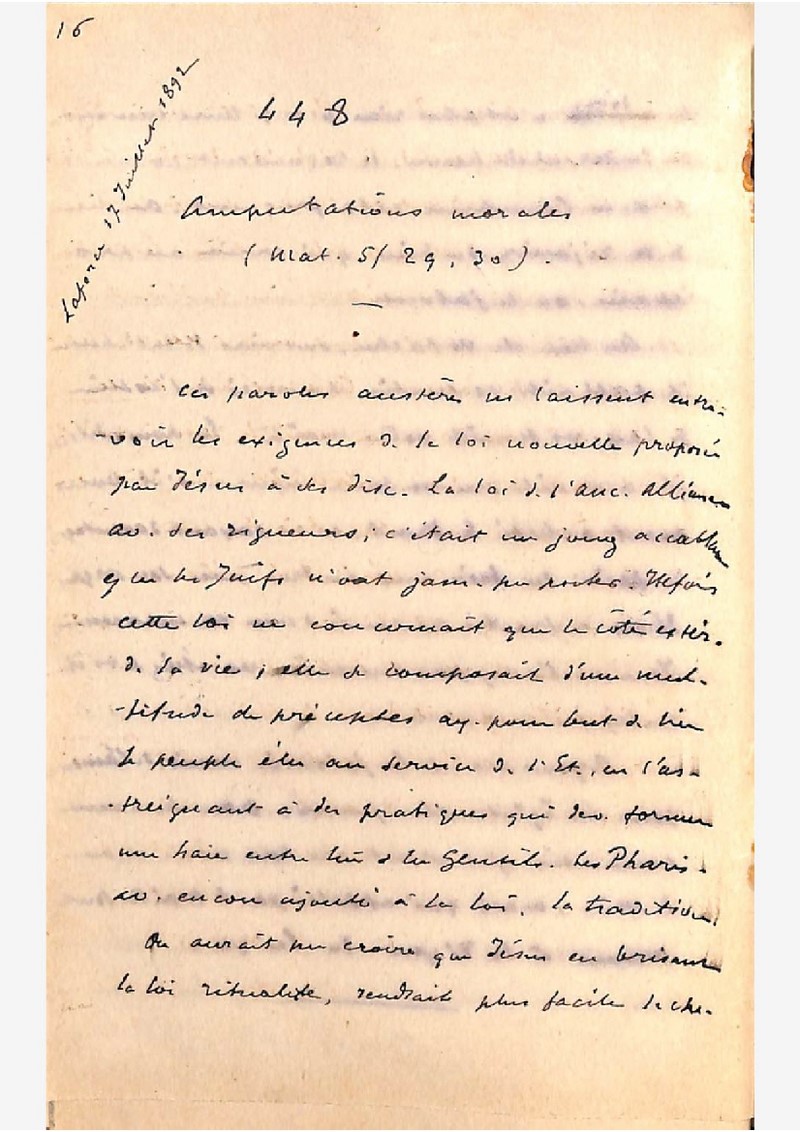 16
Laforce 17 Juillet 1892
448
Amputations morales
(Mat. 5/29,30).
Ces paroles austères ns laissent entre-
-voir les exigences de la loi nouvelle proposée
par Jésus à ses disc. La loi de l'anc. Alliance
av. ses rigueurs; c'était un joug accablant
que les Juifs n'ont jam. pu porter. Ttefois
cette loi ne concernait que le côté extér.
de la vie; elle se composait d'une mul-
-titude de préceptes ay. pour but de lier
le peuple élu au service de l'Et., en l'as-
-treignant à des pratiques qui dev. former
une haie entre lui & les Gentils. Les Pharis.
av. encore ajouté à la loi, la tradition.
On aurait pu croire que Jésus en brisant
la loi ritualiste, rendrait plus facile le che-